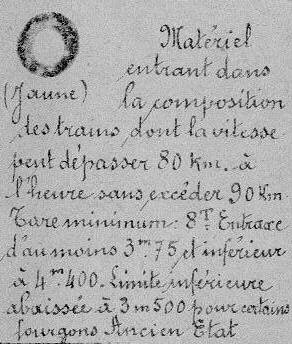 Matériel
entrant dans
(Jaune) la composition
des trains dont la vitesse
peut dépasser 80 Km. à
l'heure sans excéder 90 Km
Tare minimum: 8T. Entraxe
d'au moins 3m75, et inférieur
à 4m400. Limite inférieure
abaissée à 3m500 pour certains
fourgons Ancien Etat